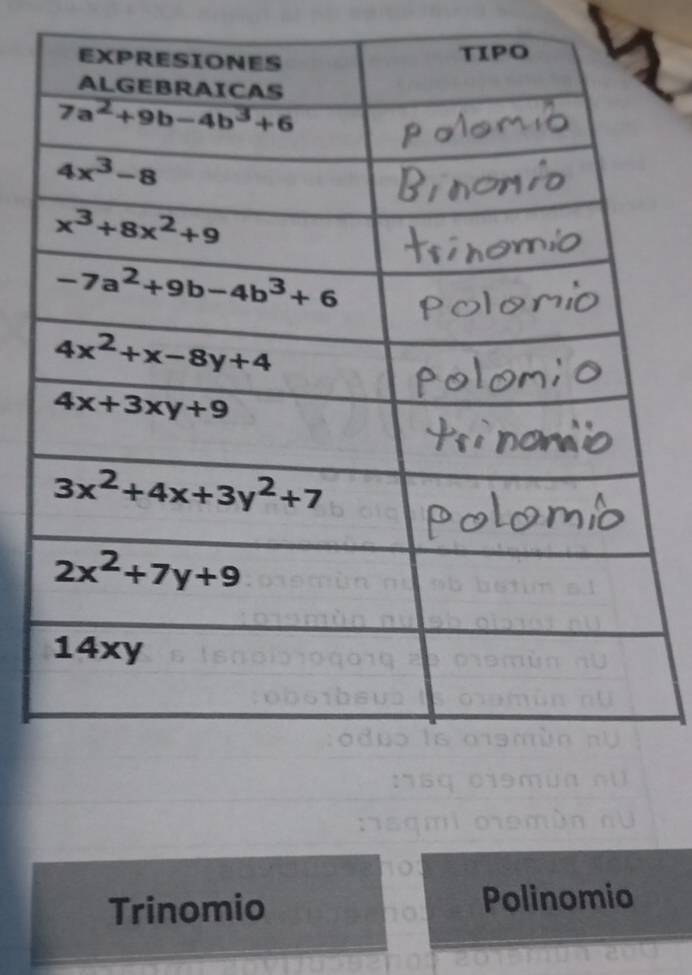 EXPRESIONES TIPO
ALGEBRAICAS
7a²+9b-4b³+6 polomio
4x³-8 Binomio
x³+8x²+9 trinomio
-7a²+9b-4b³+6 polomio
4x²+x-8y+4 polomio
4x+3xy+9 trinomio
3x²+4x+3y²+7 polomio
2x²+7y+9
14xy
Trinomio Polinomio